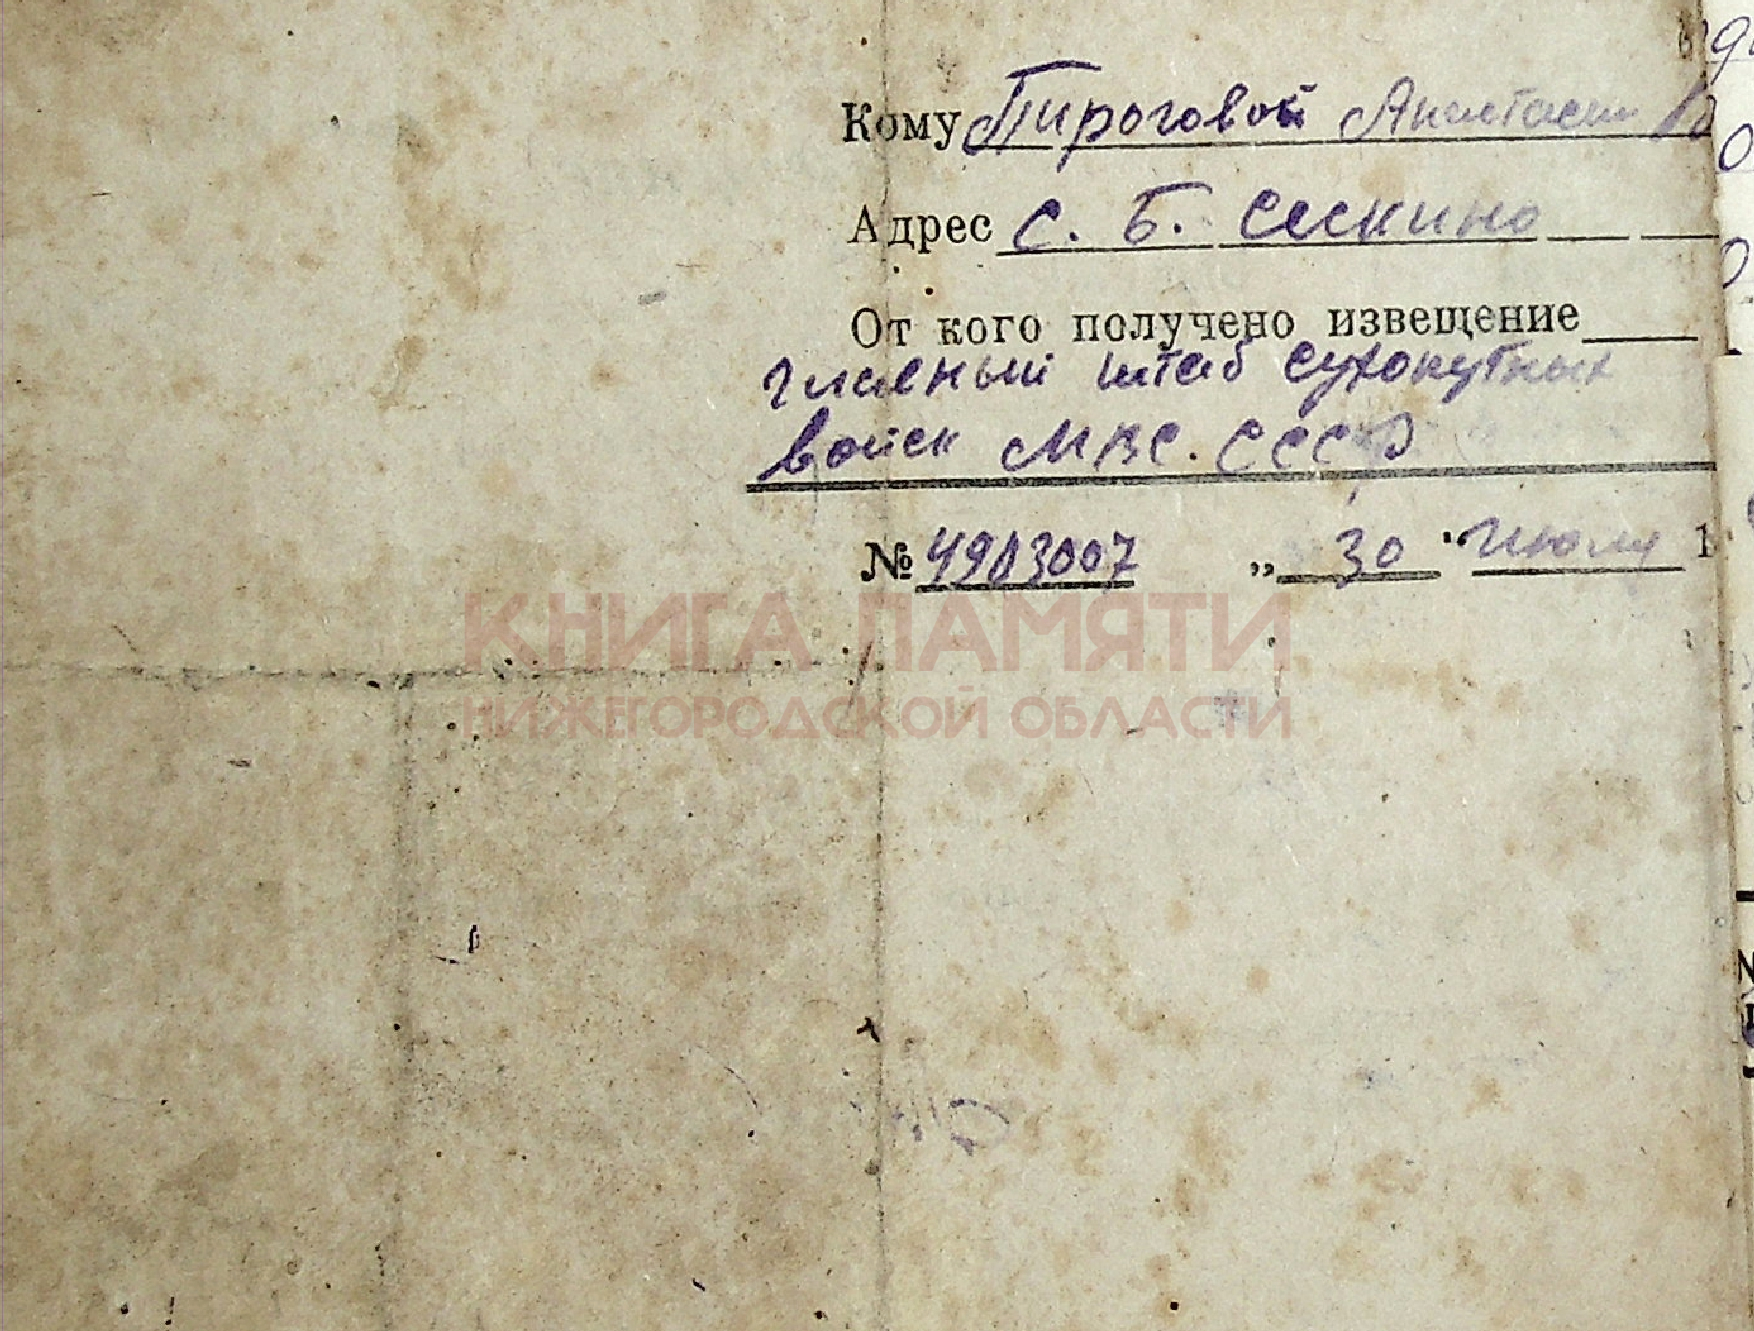 Кому Пироговой Анастасии В
Адрес с. Б. Сескино
От кого получено извещение
главный штаб сухопутных
войск МВС. СССР
№ 4903007 „ 30 " июля 1
КНИГА ПАМЯТИ
НИЖЕГОРОДСКОЙ ОБЛАСТИ